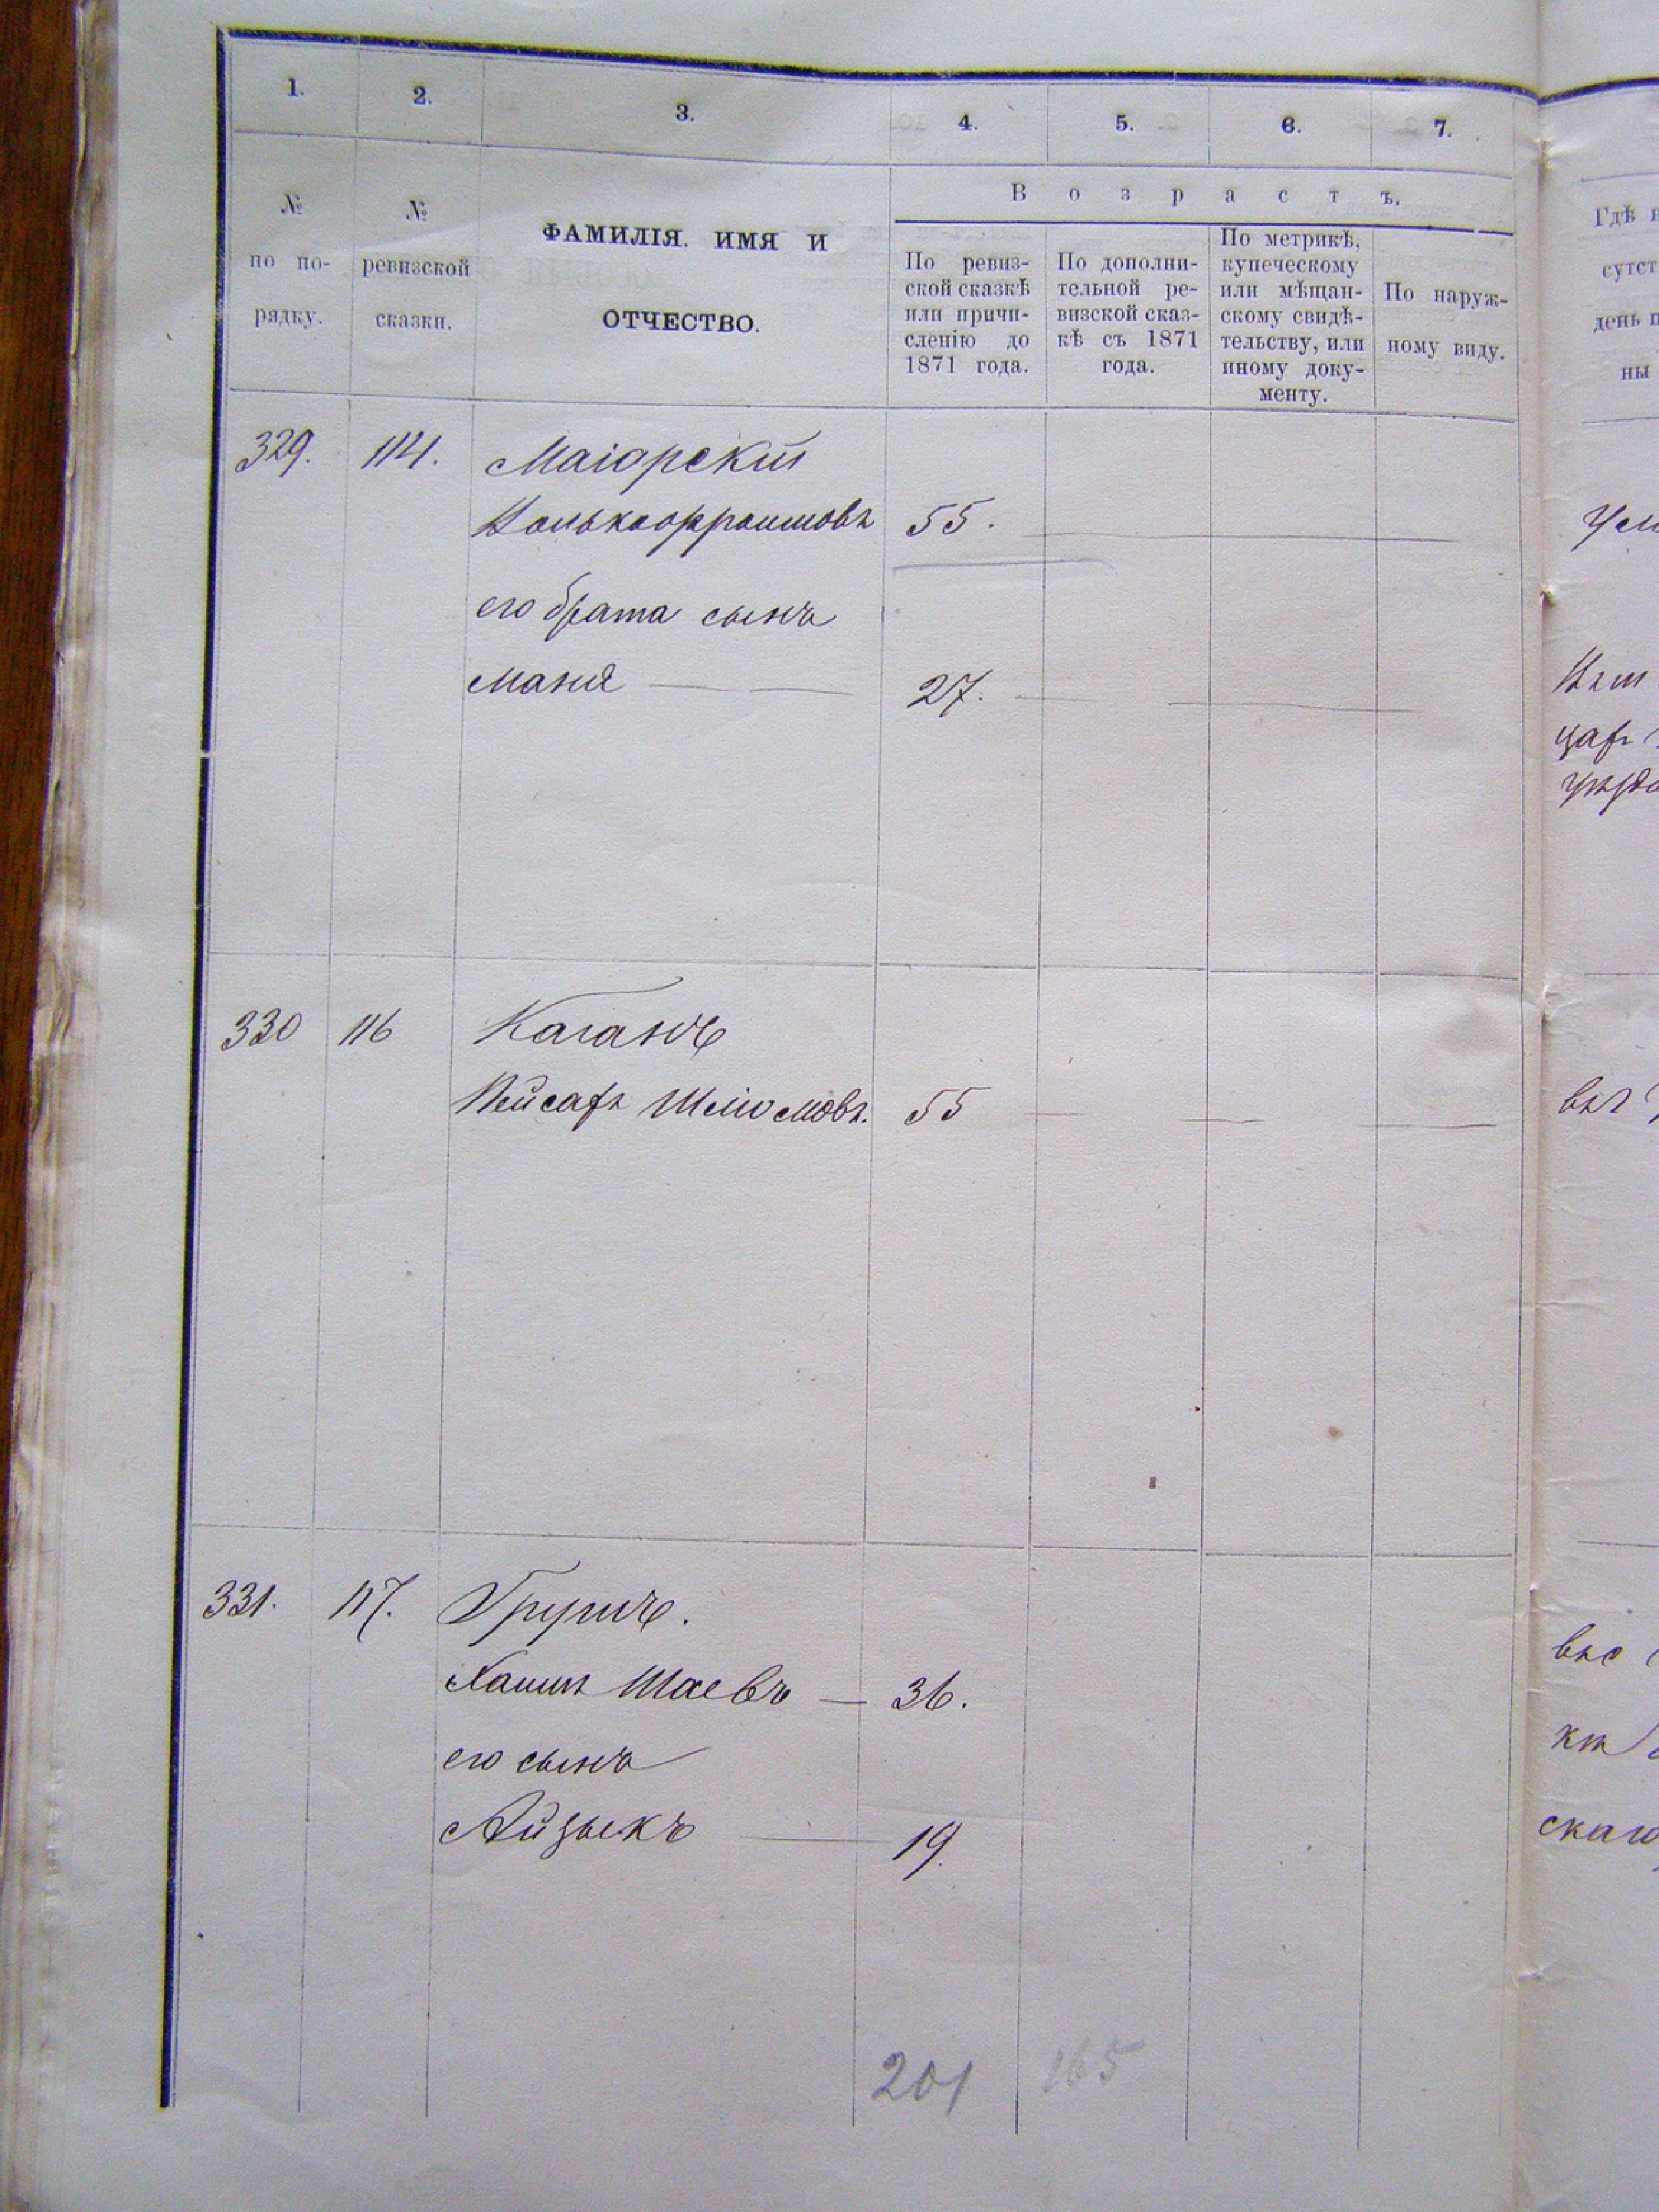 1. 2. 3. 4. 5. 6. 7.
№ по по-рядку.
№ ревизской сказки.
ФАМИЛІЯ. ИМЯ И
ОТЧЕСТВО.
Возрастъ.
По ревиз-
ской сказкѣ
или причи-
сленію до
1871 года.
По дополни-
тельной ре-
визской сказ-
кѣ съ 1871
года.
По метрикѣ,
купеческому
или мѣщан-
скому свидѣ-
тельству, или
иному доку-
менту.
По наруж-
ному виду.
Гдѣ
сутст
день
ны
329. 114. Маіорскій
55.
его брата сынъ
27.
330 116 Каганъ
Пейсахъ Шліомовъ. 55
331. 117.
Хаимъ Шаевъ — 36.
его сынъ
Айзыкъ 19.
201 165